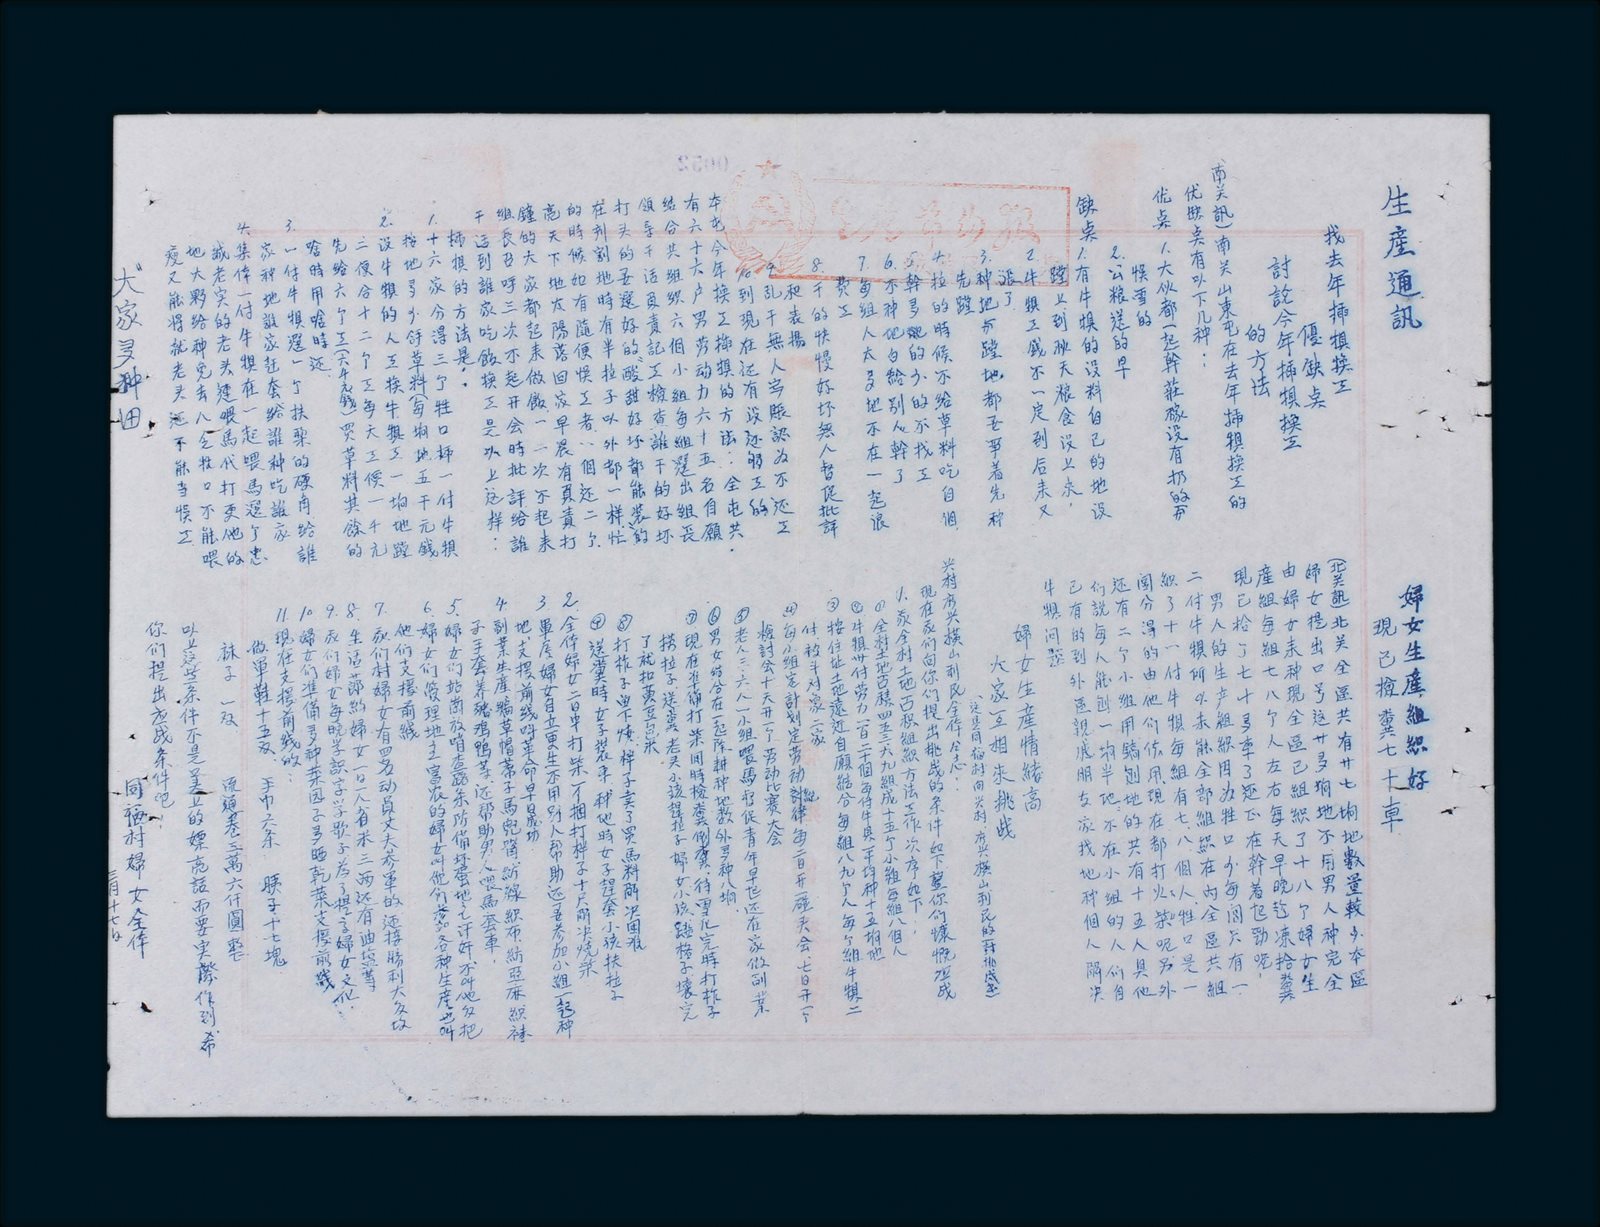 生產通訊
找去年插犋換工
優缺点
討說今年插犋換工
的方法
南关訊)南关山東屯在去年插犋換工的
优缺点有以下几种：
优点 1.大伙都一起幹莊稼没有扔的
悞雪的
2.公粮送的早
缺点 1.有牛犋的没料自己的地没
蹚上到秋天粮食没上來，
2.牛犋工錢不一定到后來又
漲了
3.种地与蹚地都要爭着先种
先蹚
4.拉的時候不給草料吃自個
5.幹多
6.不种地白給別人幹了
7.每組人太多地不在一起浪
費工
8.干的快慢好坏無人督促批評
和表揚
9.乱干無人寫賬認为不还工
10.到現在还有没还够工的
本屯今年換工插犋的方法：全屯共
有六十六户男劳动力六十五名自願
結合共組织六個小組每組選出組長
領導干活負責記工檢查誰干的好坏
打头的要選好的、酸甜好坏都能装的
在刹割地時有半拉子以外都一样忙
的時候如有隨便悞工者、一個还二个
亮天下地太陽落回家早晨有負責打
鐘的大家都起來做飯一二次不起來
組長召呼三次不起开会時批評給誰
干活到誰家吃飯換工是以上这样：
插犋的方法是：
1.十六家分得三个牲口插一付牛犋
按地多少舒草料(每垧地五千元錢
2.没牛犋的人工換牛犋工一垧地蹚
二便合十二个工每天工價一千元
先給六个工(六千元錢)買草料其餘的
啥時用啥時还
3.一付牛犋選一个扶犁的硬肩給誰
家种地誰家赶套給誰种吃誰家
4.集体一付牛犋在一起喂馬選了忠
誠老实的老头建喂馬代打更他的
地大夥給种免去人乏牲口不能喂
疫又能將就老头还不能当悞工
“大家多种田
婦女生產組織好
現已檢糞七十車
(北关訊)北关全區共有廿七垧地數量較少本區
婦女提出口号这廿多垧地不用男人种完全
由婦女來种現全區已組織了十八个婦女生
產組每組七八个人左右每天早晚趁凍拾糞
現已拾了七十多車了还正在幹着起勁呢
男人的生产組织因为牲口少每閭只有一
二付牛犋所以未能全部組織在内全區共組
織了十一付牛犋每組有七八個人牲口是一
閭分得的由他們使用現在都打火柴呢另外
还有二个小組用鎬刨地的共有十五人具他
們說每人能刨一垧半地、不在小組的人們自
己有的到外區親戚朋友家找地种個人解决
牛犋问題
婦女生產情緒高
大家互相來挑战
这是同福村向兴村 广兴 橫山 利民的对挑战書
兴村广兴横山利民全体仝志：
現在我们向你们提出挑战的条件如下望你们慷慨應战
1.我全村土地占积組織方法工作次序如下，
①全村土地占積四五三六九組成十五个小組每組八個人
②牛犋卅付劳力一百二十個每付牛具平均种十五垧地
③按住址土地遠近自願結合每組八九个人每个組牛犋二
付被半对家二家
④每小組定計划定劳动紀律每二日开一碰头会、七日开一个
檢討会十天开一个劳动比賽大会
⑤老人三六八一小組喂馬督促青年早起还在家做副業
⑥男女結合在一起除耕种地数外多种八垧
⑦現在准備打柴同時檢糞倒糞、待雪化完時打柞子
撈拉子送糞、老头小孩趕拉子婦女小孩蹚格子壤完
了就扣黄豆包米
⑧打柞子曳下燒柈子卖了買馬料解决困难
⑨送糞時女子裝車种地時女子趕套小孩扶拉子
2.全体婦女二日中打柴一个捆打柈子十尺解决燒柴
3.軍屬婦女自立更生不用別人帮助还要参加小組一起种
地支援前线叫革命早日成功
4.副業生產編草帽葦子馬兜嘴、紡線織布、紡亞麻織袜
子手套养豬鸡鴨等、还帮助男人喂馬套車、
5.婦女们站崗放哨查路条防備坏蛋地主汗奸、不叫他反把
6.婦女们管理地主富农的婦女叫他们參加各种生產也叫
他们支援前线
7.我们村婦女有四名动員丈夫参軍的迎接勝利大反攻
8.生活節約婦女一日一人有米三两还有油塩等
9.我们婦女每晚学識字学歌子为了提高婦女文化
10.婦女们準備多种菜园子多晒乾菜支援前线
11.現在支援前线的：
做軍鞋十五双、 手巾六条 胰子十七塊
袜子 一双 流通卷三萬六仟圓整
以上这些条件不是罢上的嫖亮話而要实際作到希
你们提出應战条件吧
同福村婦女全体
三月十七日
0052